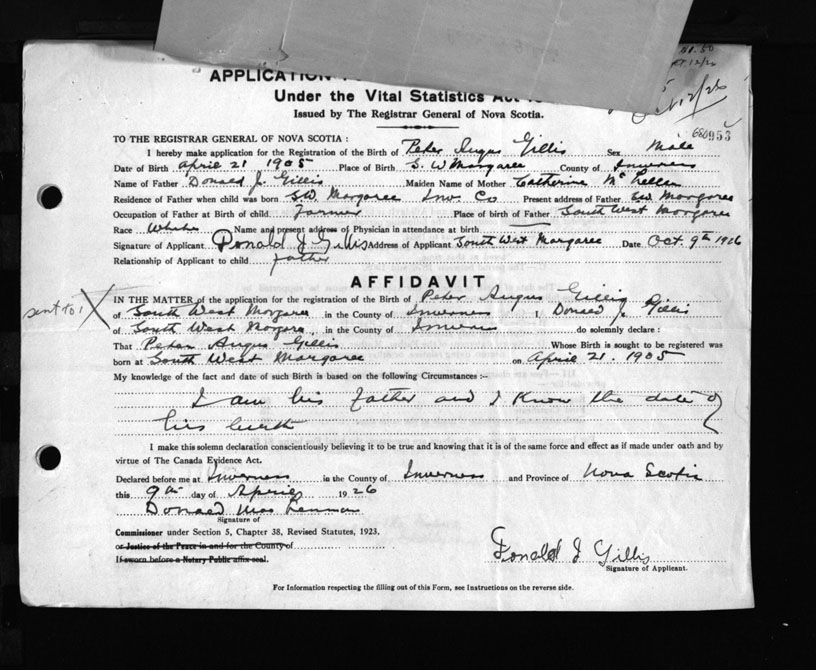 No. 50
Oct 12/26
APPLICATION
Under the Vital Statistics Act
Issued by The Registrar General of Nova Scotia.
680953
TO THE REGISTRAR GENERAL OF NOVA SCOTIA :
I hereby make application for the Registration of the Birth of Peter Angus Gillis Sex Male
Date of Birth April 21 1905 Place of Birth S. W Margaree County of Inverness
Name of Father Donald J. Gillis Maiden Name of Mother Catherine McLellan
Residence of Father when child was born S.W. Margaree Inv. Co Present address of Father S.W Margaree
Occupation of Father at Birth of child Farmer Place of birth of Father South West Margaree
Race White Name and present address of Physician in attendance at birth
Signature of Applicant Donald J Gillis Address of Applicant South West Margaree Date Oct. 9th 1926
Relationship of Applicant to child father
AFFIDAVIT
sent to
IN THE MATTER of the application for the registration of the Birth of Peter Angus Gillis
of South West Margaree in the County of Inverness I, Donald J. Gillis
of South West Margaree in the County of Inverness do solemnly declare :
That Peter Angus Gillis Whose Birth is sought to be registered was
born at South West Margaree on April 21. 1905
My knowledge of the fact and date of such Birth is based on the following Circumstances :-
I am his father and I know the date of
his birth
I make this solemn declaration conscientiously believing it to be true and knowing that it is of the same force and effect as if made under oath and by
virtue of The Canada Evidence Act.
Declared before me at Inverness in the County of Inverness and Province of Nova Scotia
this 9th day of April 1926
Donald MacLennan
Signature of
Commissioner under Section 5, Chapter 38, Revised Statutes, 1923.
or Justice of the Peace in and for the County of
If sworn before a Notary Public affix seal.
Donald J Gillis
Signature of Applicant.
For Information respecting the filling out of this Form, see Instructions on the reverse side.